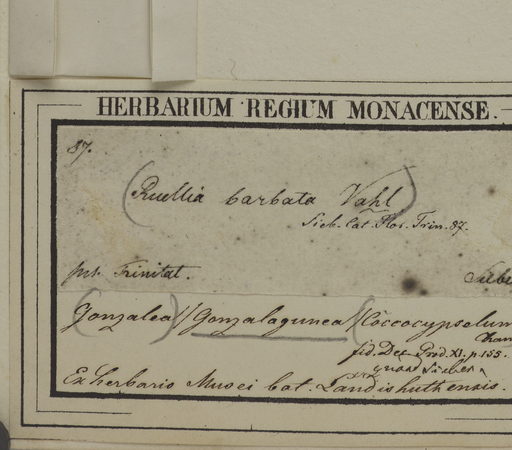 HERBARIUM REGIUM MONACENSE.
87.
(Ruellia barbata Vahl)
Sieb. Cat. Flor. Trin. 87.
Trinitat. Siebe
(Gonzalea) // Gonzalagunea // (Coccocypselum
Cham
fid. Dec. Prod. XI. p. 155.
quoad Sieber
Ex herbario Musei bot. Landishuthensis.